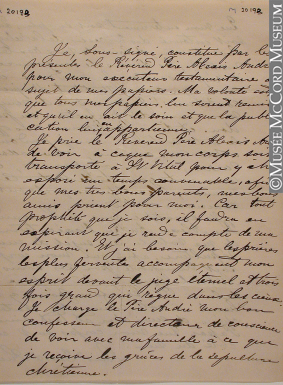 M 20192
Je, sous-signé, constitue par les
présentes le Révérend Père Alexis André
pour mon exécuteur testamentaire au
sujet de mes papiers. Ma volonté est
que tous mes papiers lui soient remis
et qu'il en ait le soin et que la publi-
cation lui en appartienne.
Je prie le Révérend Père Alexis An
de voir à ce que mon corps soit
transporté à St Vital pour y être
déposé en temps convenable, afin
que mes très bons parents, mes bons
amis prient pour moi. Car tout
prophète que je sois, il faudra en
expirant que je rende compte de ma
mission. Et j'ai besoin que les prières
les plus ferventes accompagnent mon
esprit devant le juge éternel et trois
fois grand qui règne dans les cieux.
Je charge le Père André mon bon
confesseur et directeur de conscience
de voir avec ma famille à ce que
je reçoive les grâces de la sépulture
chrétienne.
© MUSÉE McCORD MUSEUM